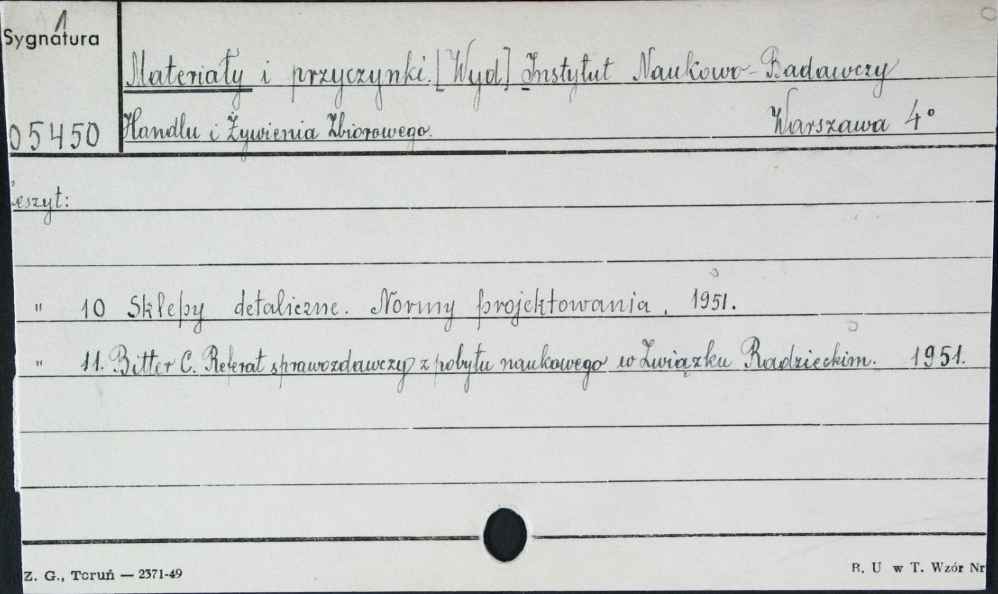 1
Sygnatura
Materiały i przyczynki. [Wyd] Instytut Naukowo-Badawczy
05450 Handlu i Żywienia Zbiorowego. Warszawa 4°
eszyt:
" 10 Sklepy detaliczne. Normy projektowania. 1951.
" 11. Bitter C. Referat sprawozdawczy z pobytu naukowego w Związku Radzieckim. 1951.
Z. G., Toruń — 2371-49
B. U w T. Wzór Nr